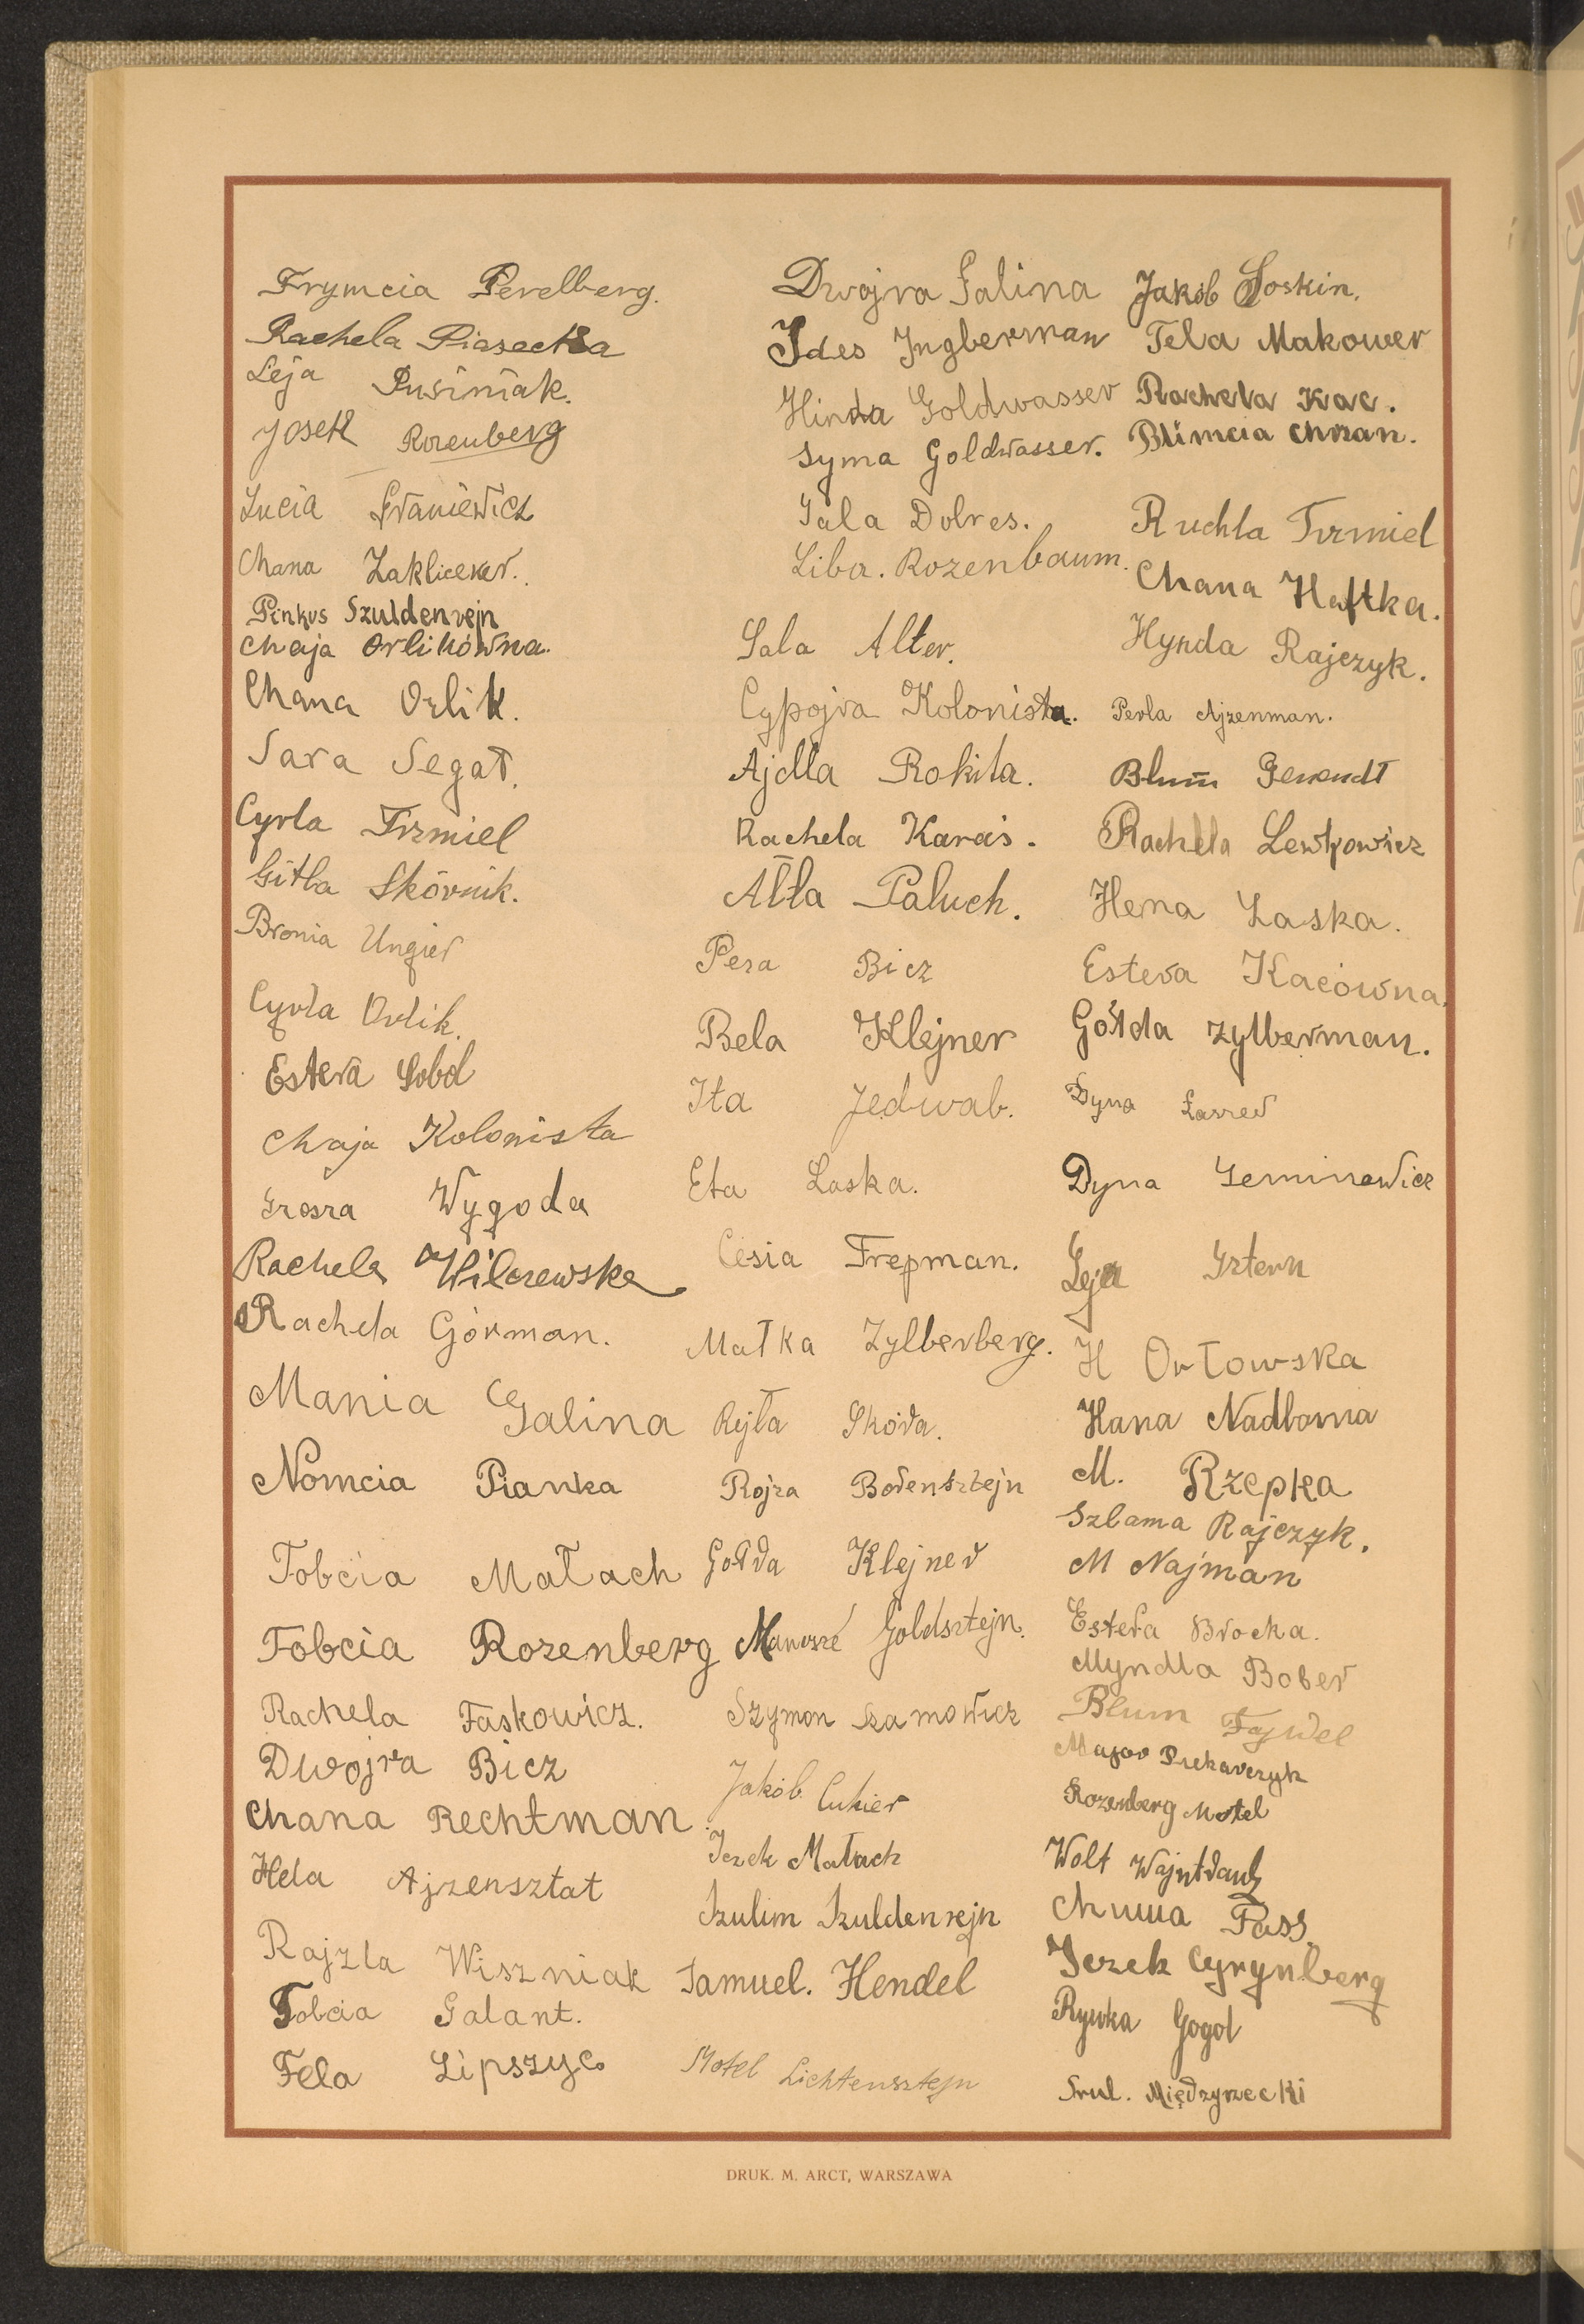 Frymcia Perelberg.
Rachela Piasecka
Leja Puśiniak.
Josek Rozenberg
Lucia
Chana Zakliceker.
Pinkus Szuldenrejn
Chaja Orlikówna.
Chana Orlik.
Sara Segał.
Cyrla Trzmiel
Gitla Skórnik.
Bronia Ungier
Cyrla Orlik.
Estera Sobol
Chaja Kolonista
Wygoda
Rachela Wilczewska
Rachela Górman.
Mania Galina
Nomcia Pianka
Tobcia Małach
Tobcia Rozenberg
Rachela Faskowicz.
Dwojra Bicz
Chana Rechtman
Hela Ajzensztat
Rajzla Wiszniak
Tobcia Galant.
Fela Lipszyc.
Dwojra Galina
Ides Ingberman
Hinda Goldwasser
Syma Goldwasser.
Sala Dolres.
Liba. Rozenbaum.
Sala Alter.
Cypojra Kolonista.
Ajdla Rokita.
Rachela Karaś.
Ałła Paluch.
Pera Bicz
Bela Klejner
Ita Jedwab.
Eta Laska.
Cesia Frepman.
Małka Zylberberg.
Rejla Skóra.
Rojza Borensztejn
Gołda Klejner
Goldsztejn.
Szymon Szamowicz
Jakób Cukier
Iczek Małach
Szulim Szuldenrejn
Samuel. Hendel
Motel Lichtensztejn
Jakób Soskin.
Fela Makower
Rachela Kac.
Blimcia Chrzan.
Ruchla Trzmiel
Chana Haftka.
Hynda Rajczyk.
Perla Ajzenman.
Blum
Rachela Lewkowicz
Hena Laska.
Estera Kacówna.
Gołda Zylberman.
Dyna
Dyna Geminowicz
Leja Sztern
H Orłowska
Hana Nadborna
M. Rzepka
Szlama Rajczyk.
M Najman
Estera Brocka.
Myndla Bober
Blum Fajwel
Major Piekarczyk
Rozenberg Motel
Wolf
Chuma Pass.
Iczek Cyrynberg
Rywka Gogol
Srul. Międzyrzecki
DRUK. M. ARCT, WARSZAWA